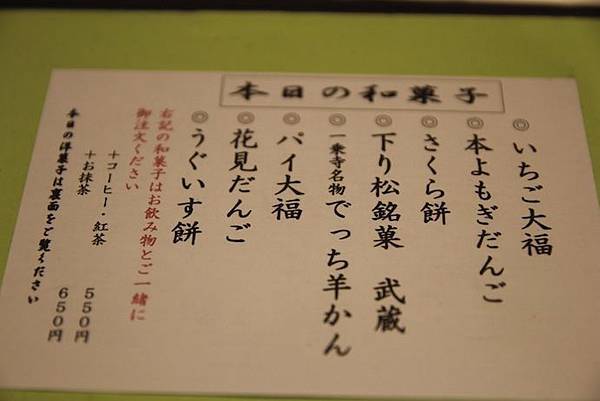 本日の和菓子
◎いちご大福
◎本よもぎだんご
◎さくら餅
◎下り松銘菓 武蔵
◎一乗寺名物でっち羊かん
◎パイ大福
◎花見だんご
◎うぐいす餅
右記の和菓子はお飲み物とご一緒に
御注文ください
＋コーヒー・紅茶 ５５０円
＋お抹茶 ６５０円
本日の洋菓子は裏面をご覧ください